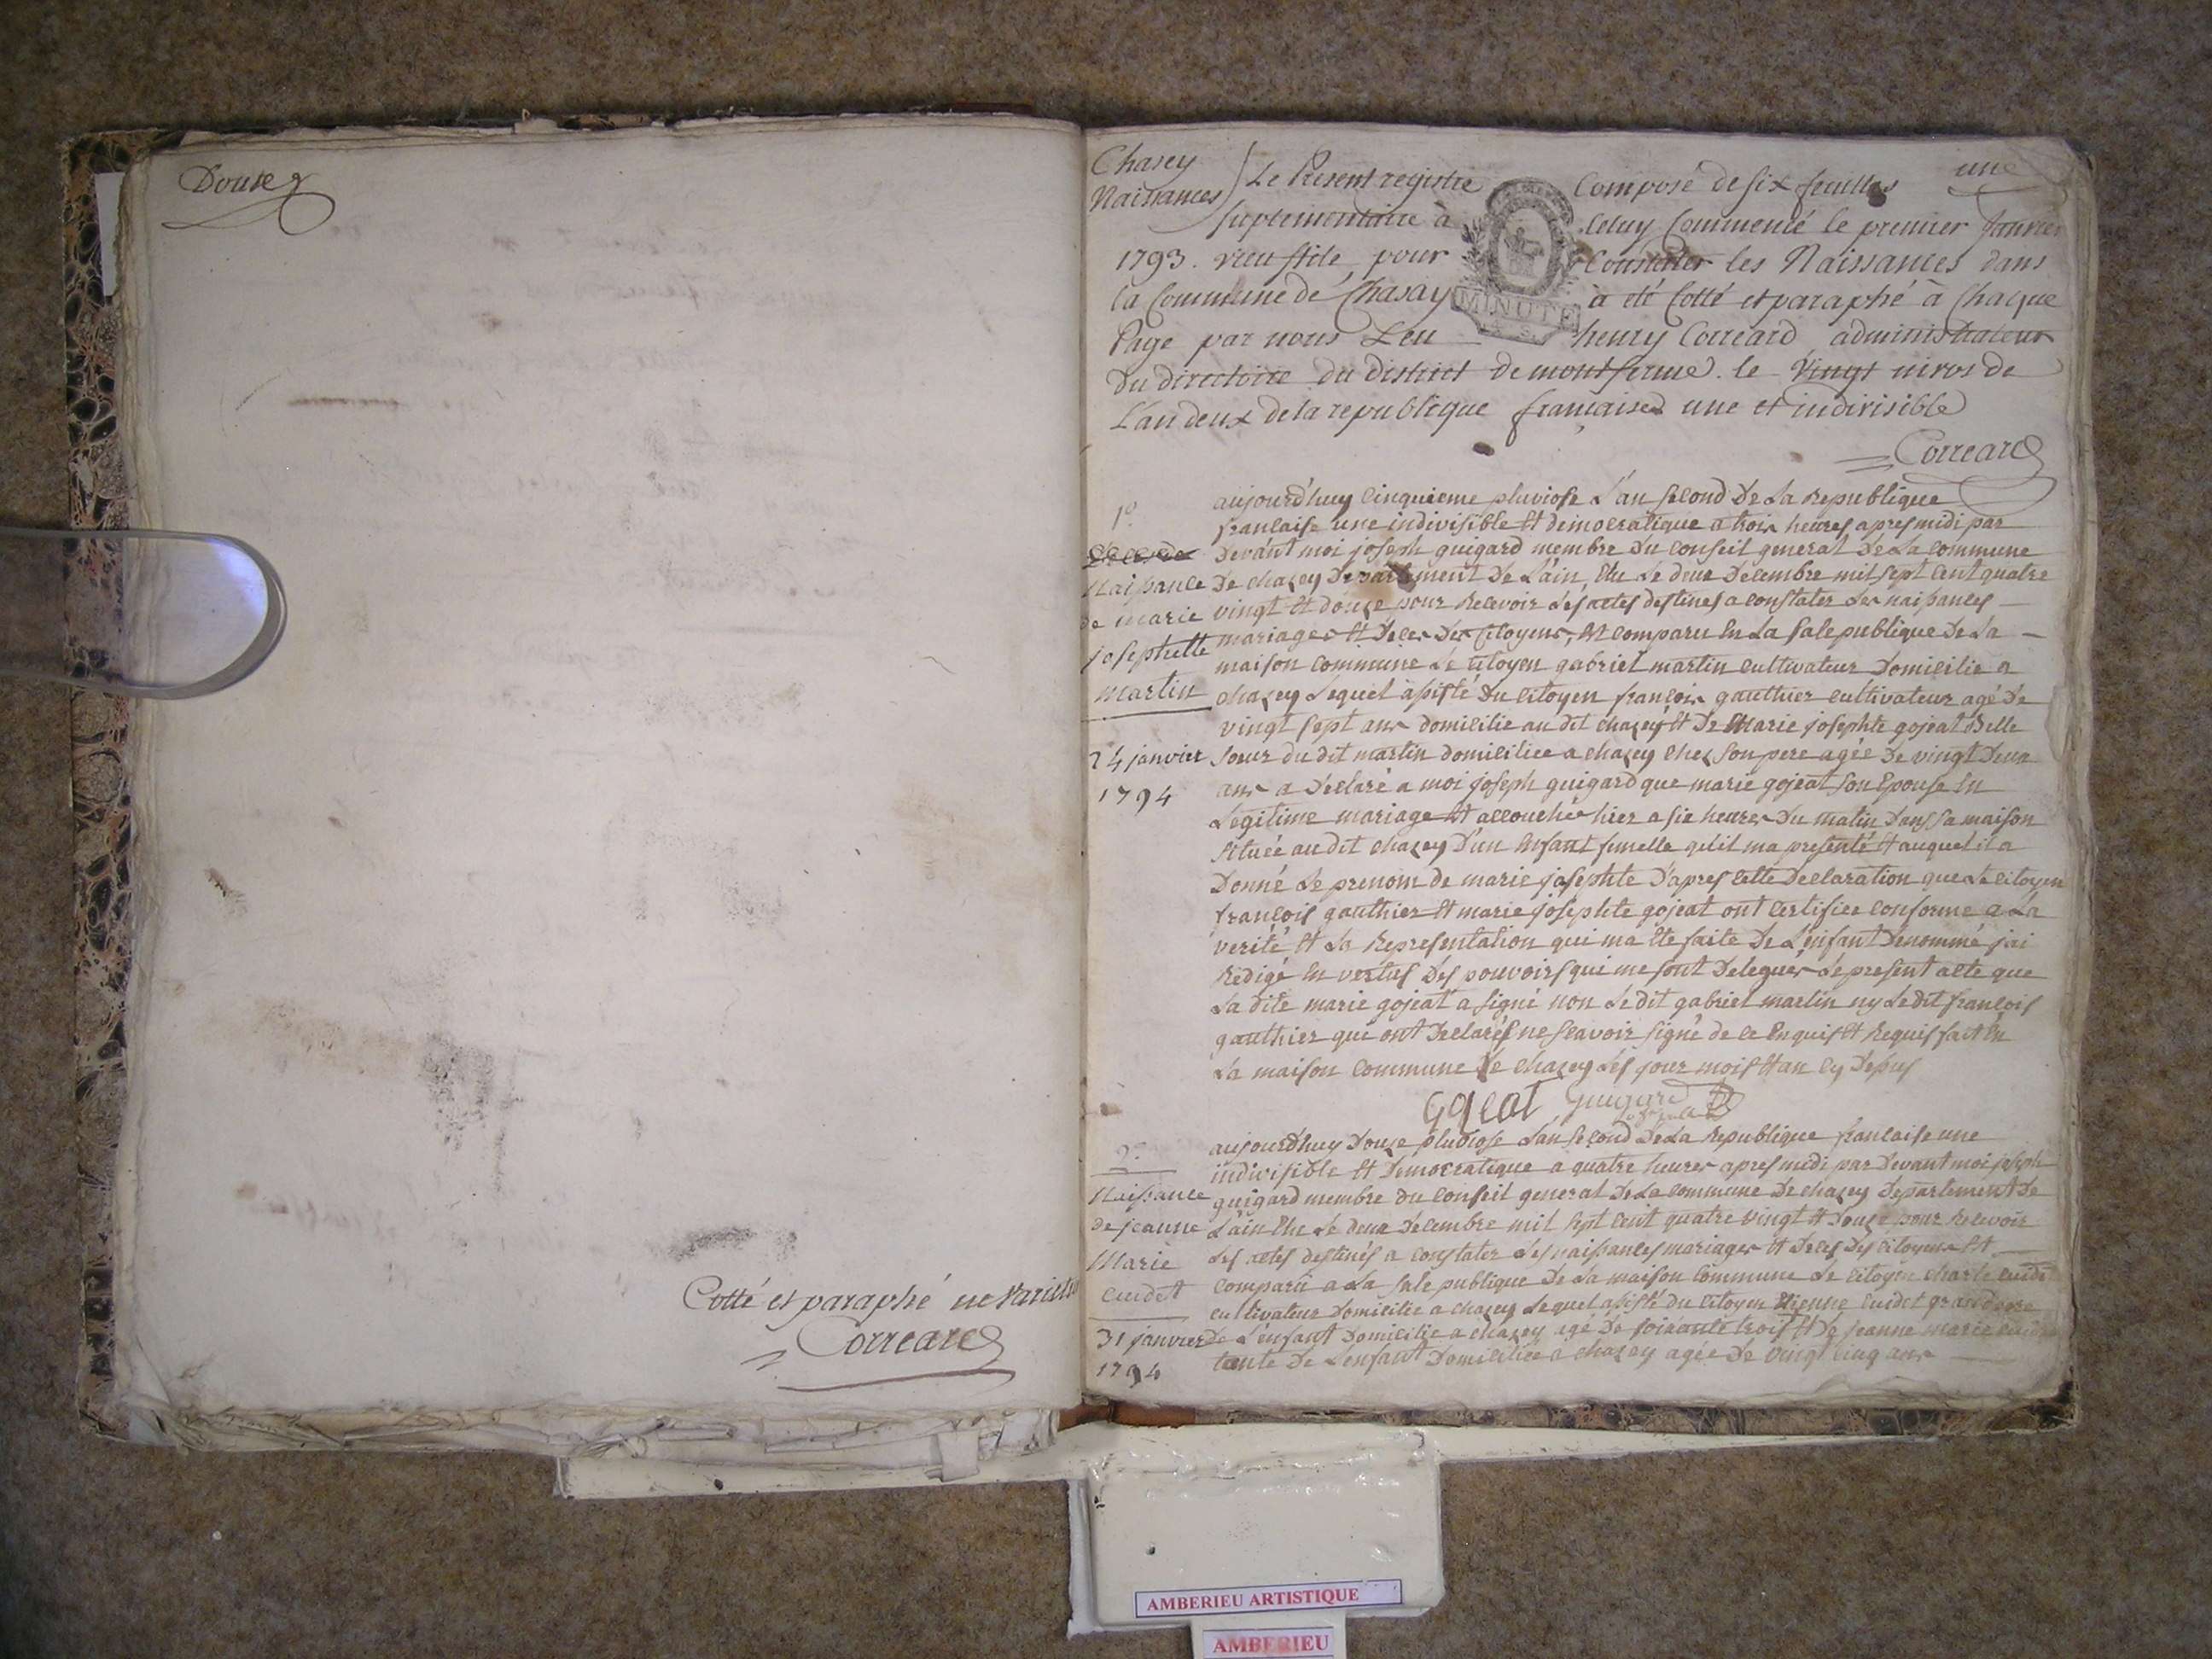 Douze
Cotté et paraphé ne Varietur
Correard
Chasey
Naissances
une
Le Présent registre Composé de six feuilles
suplementaire à Celuy Commencé le premier Janvier
1793. vieu stile pour Constater les Naissances dans
la Commune de Chasay à été Cotté et paraphé à Chaque
Page par nous Leu henry Correard administrateur
Du directoire du District de montferme. le Vingt nivos de
L'an deux de la republique française une et indivisible
Correard
MINUTE
1º
Naissance
de marie
josephtte
martin
24 janvier
1794
aujourd'huy cinquieme pluviose L'an second De La Republique
francaise une indivisible Et democratique a trois heures apres midi par
Devant moi joseph guigard membre Du conseil general De La commune
De chazey Departement De L'ain, Elu Le deux Decembre mil sept cent quatre
vingt Et douze pour Recevoir Les actes destines a constater Les naissances
mariages Et Deces Des Citoyens, Est comparu En La sale publique De La
maison commune Le Citoyen gabriel martin cultivateur Domicilie a
chazey Lequel assisté Du citoyen francois gauthier cultivateur agé De
vingt sept ans domicilie au dit chazey Et De Marie josephte gojeat Belle
soeur du dit martin domiciliee a chazey chez son pere agée De vingt Deux
ans a Declaré a moi joseph guigard que marie gojeat son Epouse En
Legitime mariage Et accouchée hier a six heures Du matin Dans sa maison
située au dit chazey D'un Enfant femelle qu'il ma presenté Et auquel il a
Donné Le prenom de marie josephte D'apres cette Declaration que Le citoyen
francois gauthier Et marie josephte gojeat ont certifiee conforme a La
verité Et La Representation qui ma Ete faite De L'enfant Denommé jai
Redigé En vertus Des pouvoirs qui me sont Delegués Le present acte que
La dite marie gojeat a signé non Le dit gabriel martin ny Le dit francois
gauthier qui ont Declarés ne scavoir signé de ce Enquis Et Requis fait En
La maison commune De chazey Les jour mois Et an cy Dessus
Gojeat Guigard
2º
Naissance
de jeanne
Marie
cuidet
31 janvier
1794
aujourdhuy Douze pluviose L'an second De La Republique francaise une
indivisible Et Democratique a quatre heures apres midi par Devant moi joseph
guigard membre du conseil general De La commune De chazey Departement De
L'ain Elu Le deux Decembre mil sept cent quatre vingt Et Douze pour Recevoir
Les actes destinés a constater Les naissances mariages Et Deces Des citoyens Et
comparu a La sale publique De La maison commune Le citoyen charle cuidet
cultivateur Domicilie a chazey Lequel assisté du citoyen Etienne cuidet grand pere
De L'enfant Domicilie a chazey agé De soixante trois Et De Jeanne marie cuidet
tante De L'enfant Domiciliee a chazey agée De vingt cinq ans
AMBERIEU ARTISTIQUE
AMBERIEU